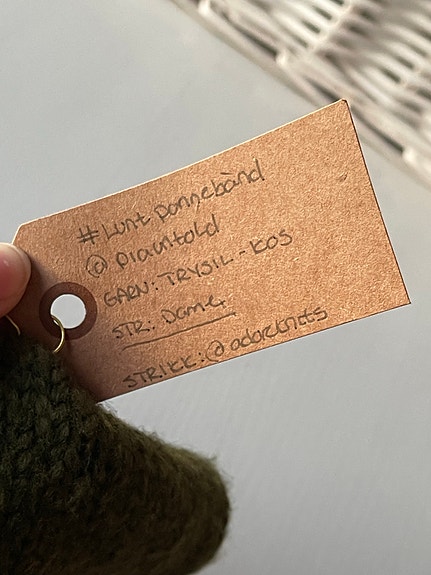 #Lunt pannebånd
@
GARN: TRYSIL - KOS
STR: Dame
STRIKK: @